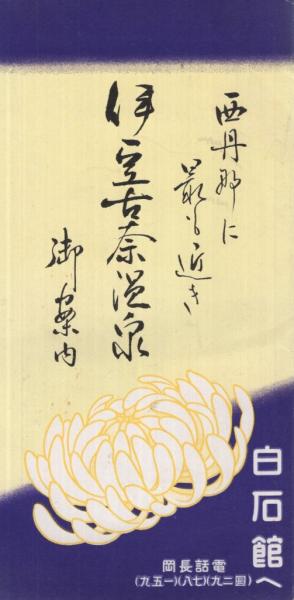 西丹那に
最も近き
伊豆古奈温泉
御案内
白石館へ
電話長岡
(七八)(一五九)